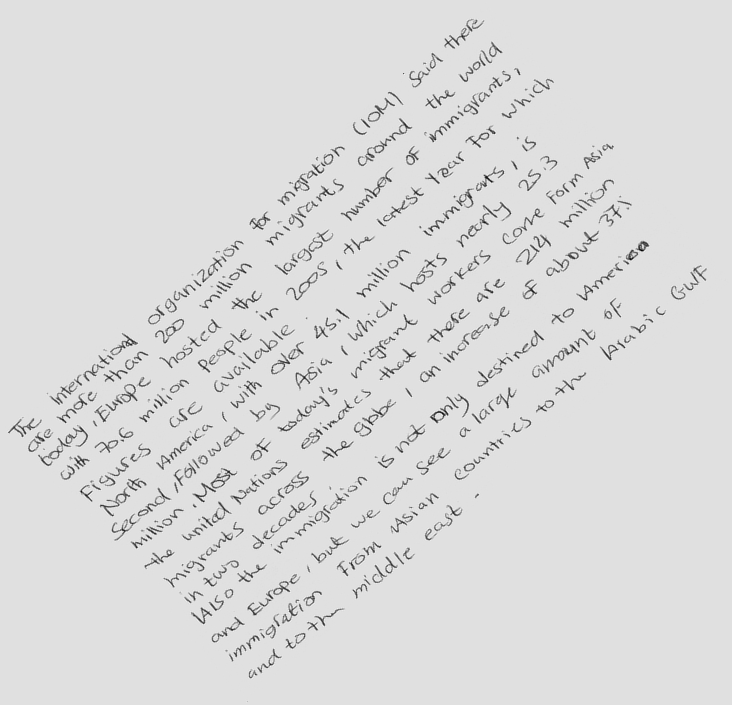 The International organization For migration (IOM) Said there
are more than 200 million migrants around the world
today, Europe hosted the largest number of immigrants,
with 70.6 million People in 2005, the latest Year For which
Figures are available.
North America, with over 45.1 million immigrants, is
Second, Followed by Asia, which hosts nearly 25.3
million. Most of today's migrant workers come Form Asia
the united Nations estimates that there are 214 million
migrants across the globe, an increase of about 37%
in two decades.
Also the immigration is not only destined to America
and Europe, but we can see a large amount of
immigration From Asian countries to the Arabic GWF
and to the middle east.